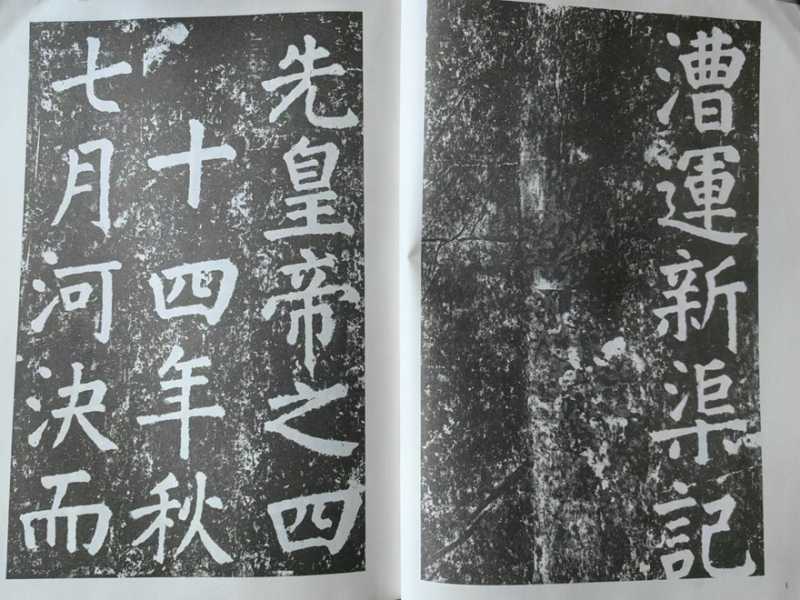 漕運新渠記
先皇帝之四
十四年秋
七月河決而